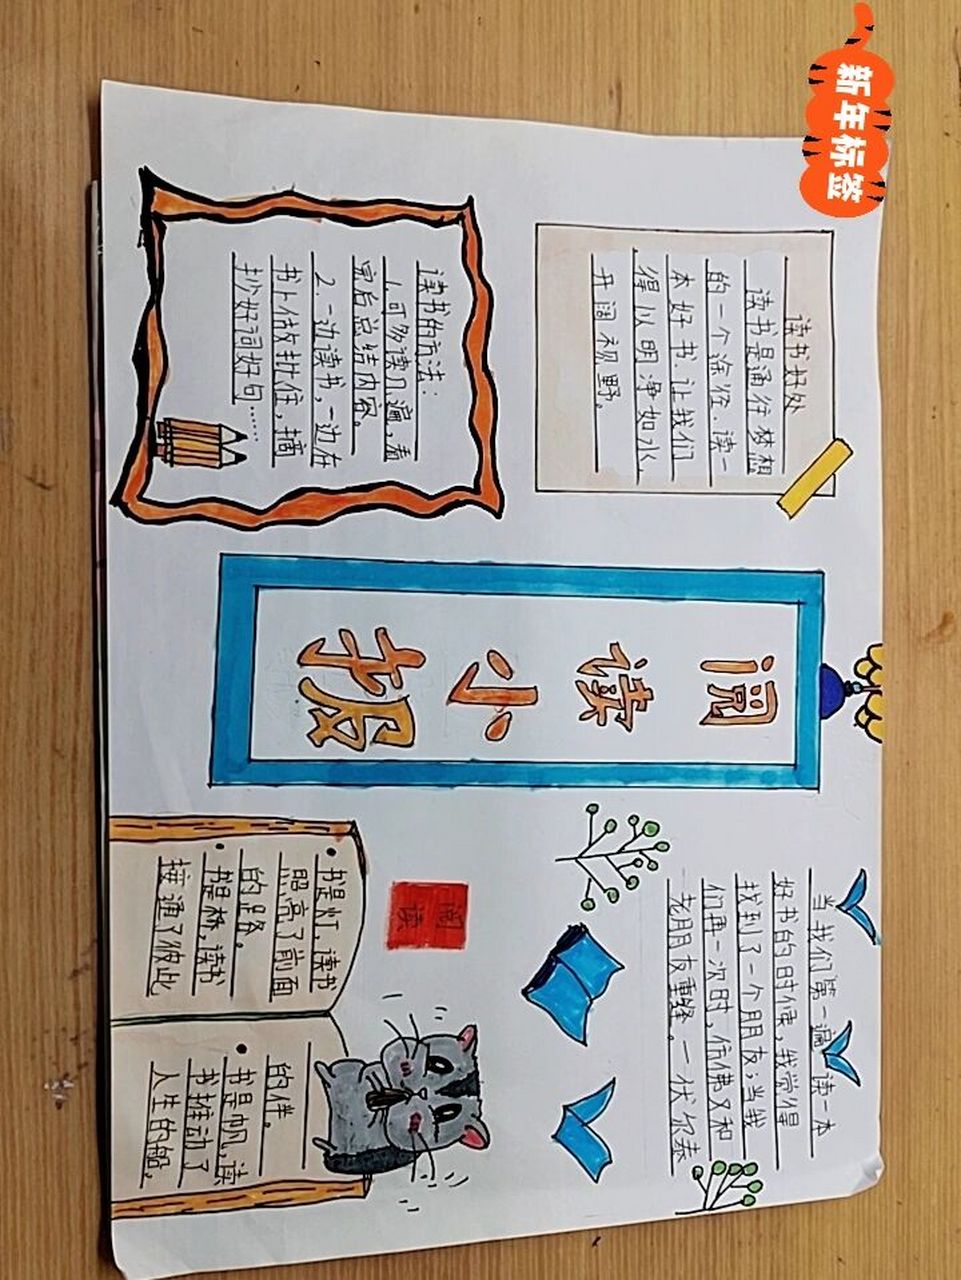 新年标签
读书好处
读书是通往梦想
的一个途径.读一
本好书.让我们
得以明净如水,
开阔视野。
读书的方法:
1.可多读几遍,看
完后总结内容。
2.一边读书,一边在
书上做批住,摘
抄好词好句……
阅读小报
当我们第一遍读一本
好书的时候,我觉得
找到了一个朋友;当我
们再一次时,仿佛又和
老朋友重逢。一伏尔泰
阅
读
•书是灯,读书
照亮了前面
的路。
•书是桥,读书
接通了彼此
的伴。
•书是帆,读
书推动了
人生的船,